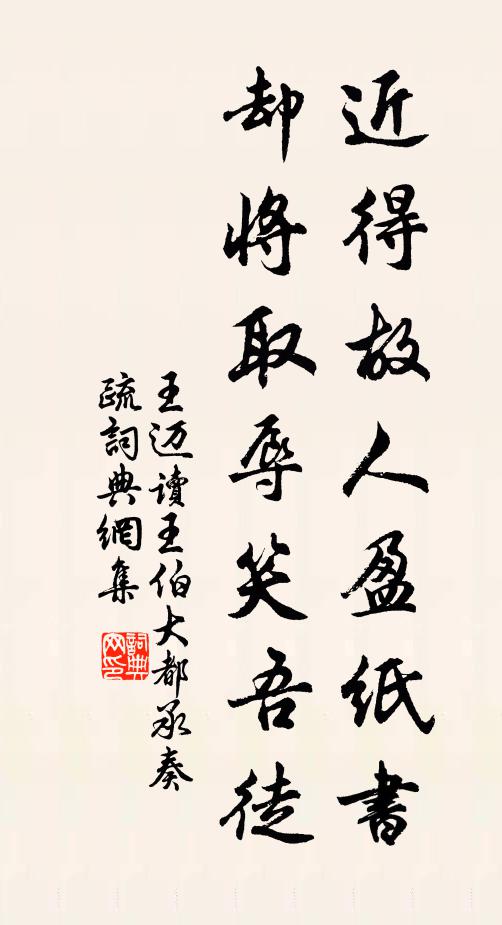 近得故人盈紙書
却將取辱笑吾徒
王迈讀王伯大都承奏
疏詞典網集
詞典
网印